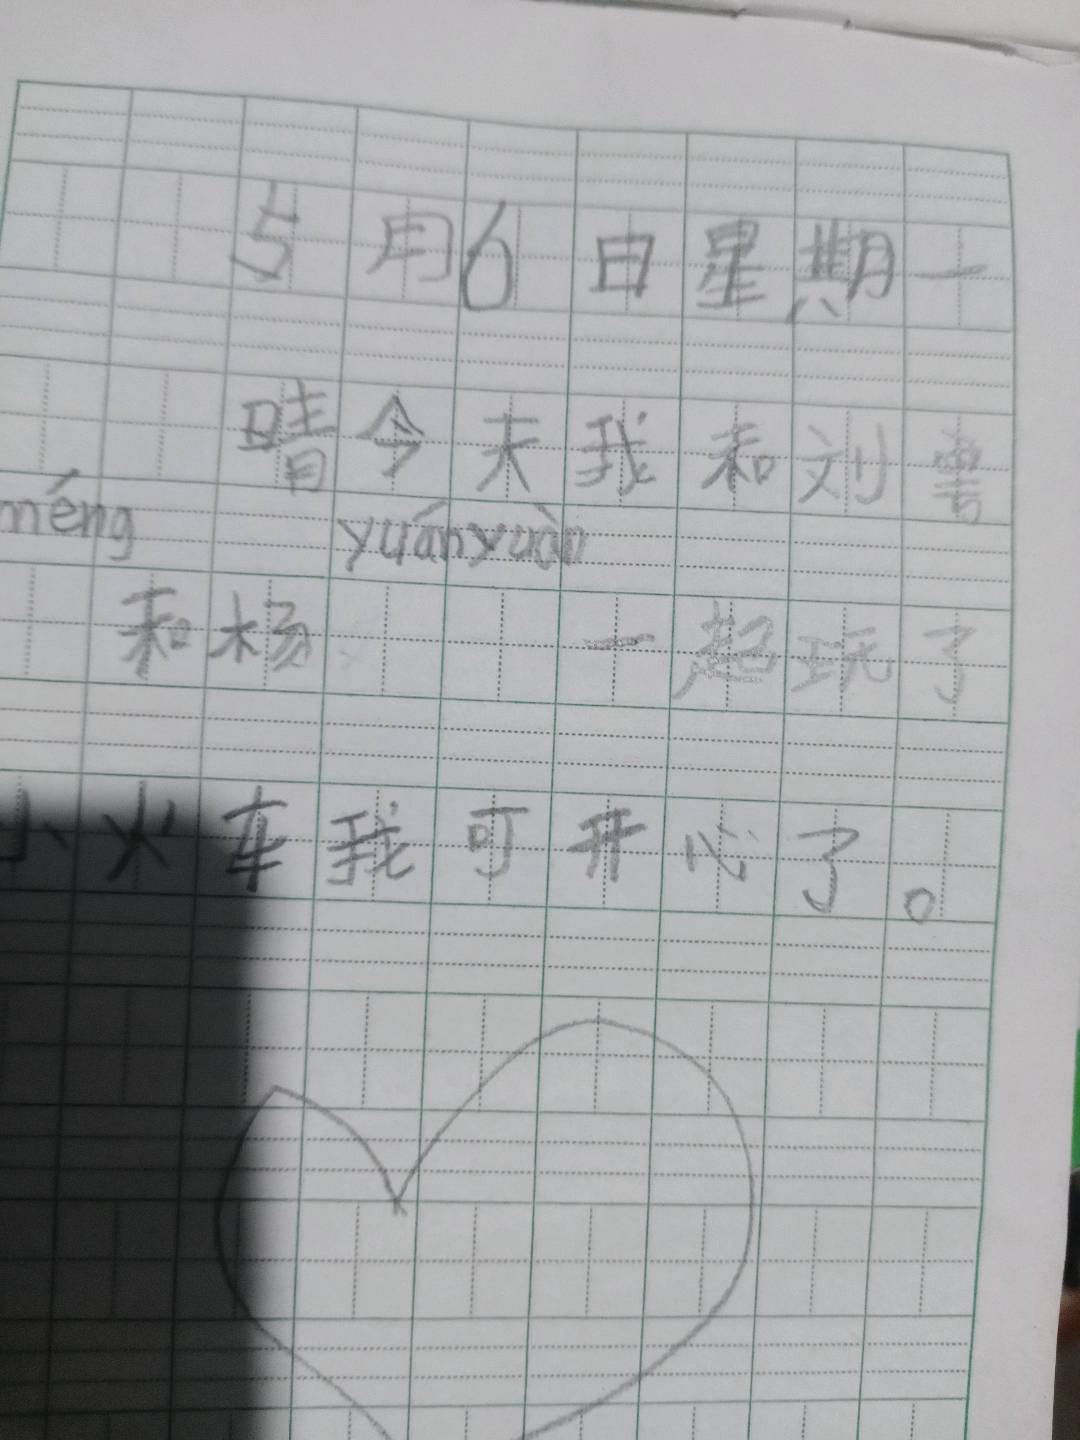 5月6日星期一
晴今天我和刘雪
méng yuányuàn
和杨 一起玩了
小火车我可开心了。